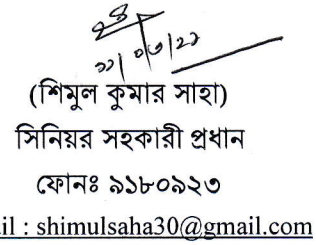 ২২/০৩/২২
(শিমুল কুমার সাহা)
সিনিয়র সহকারী প্রধান
ফোনঃ ৯১৮০৯২৩
il : shimulsaha30@gmail.com